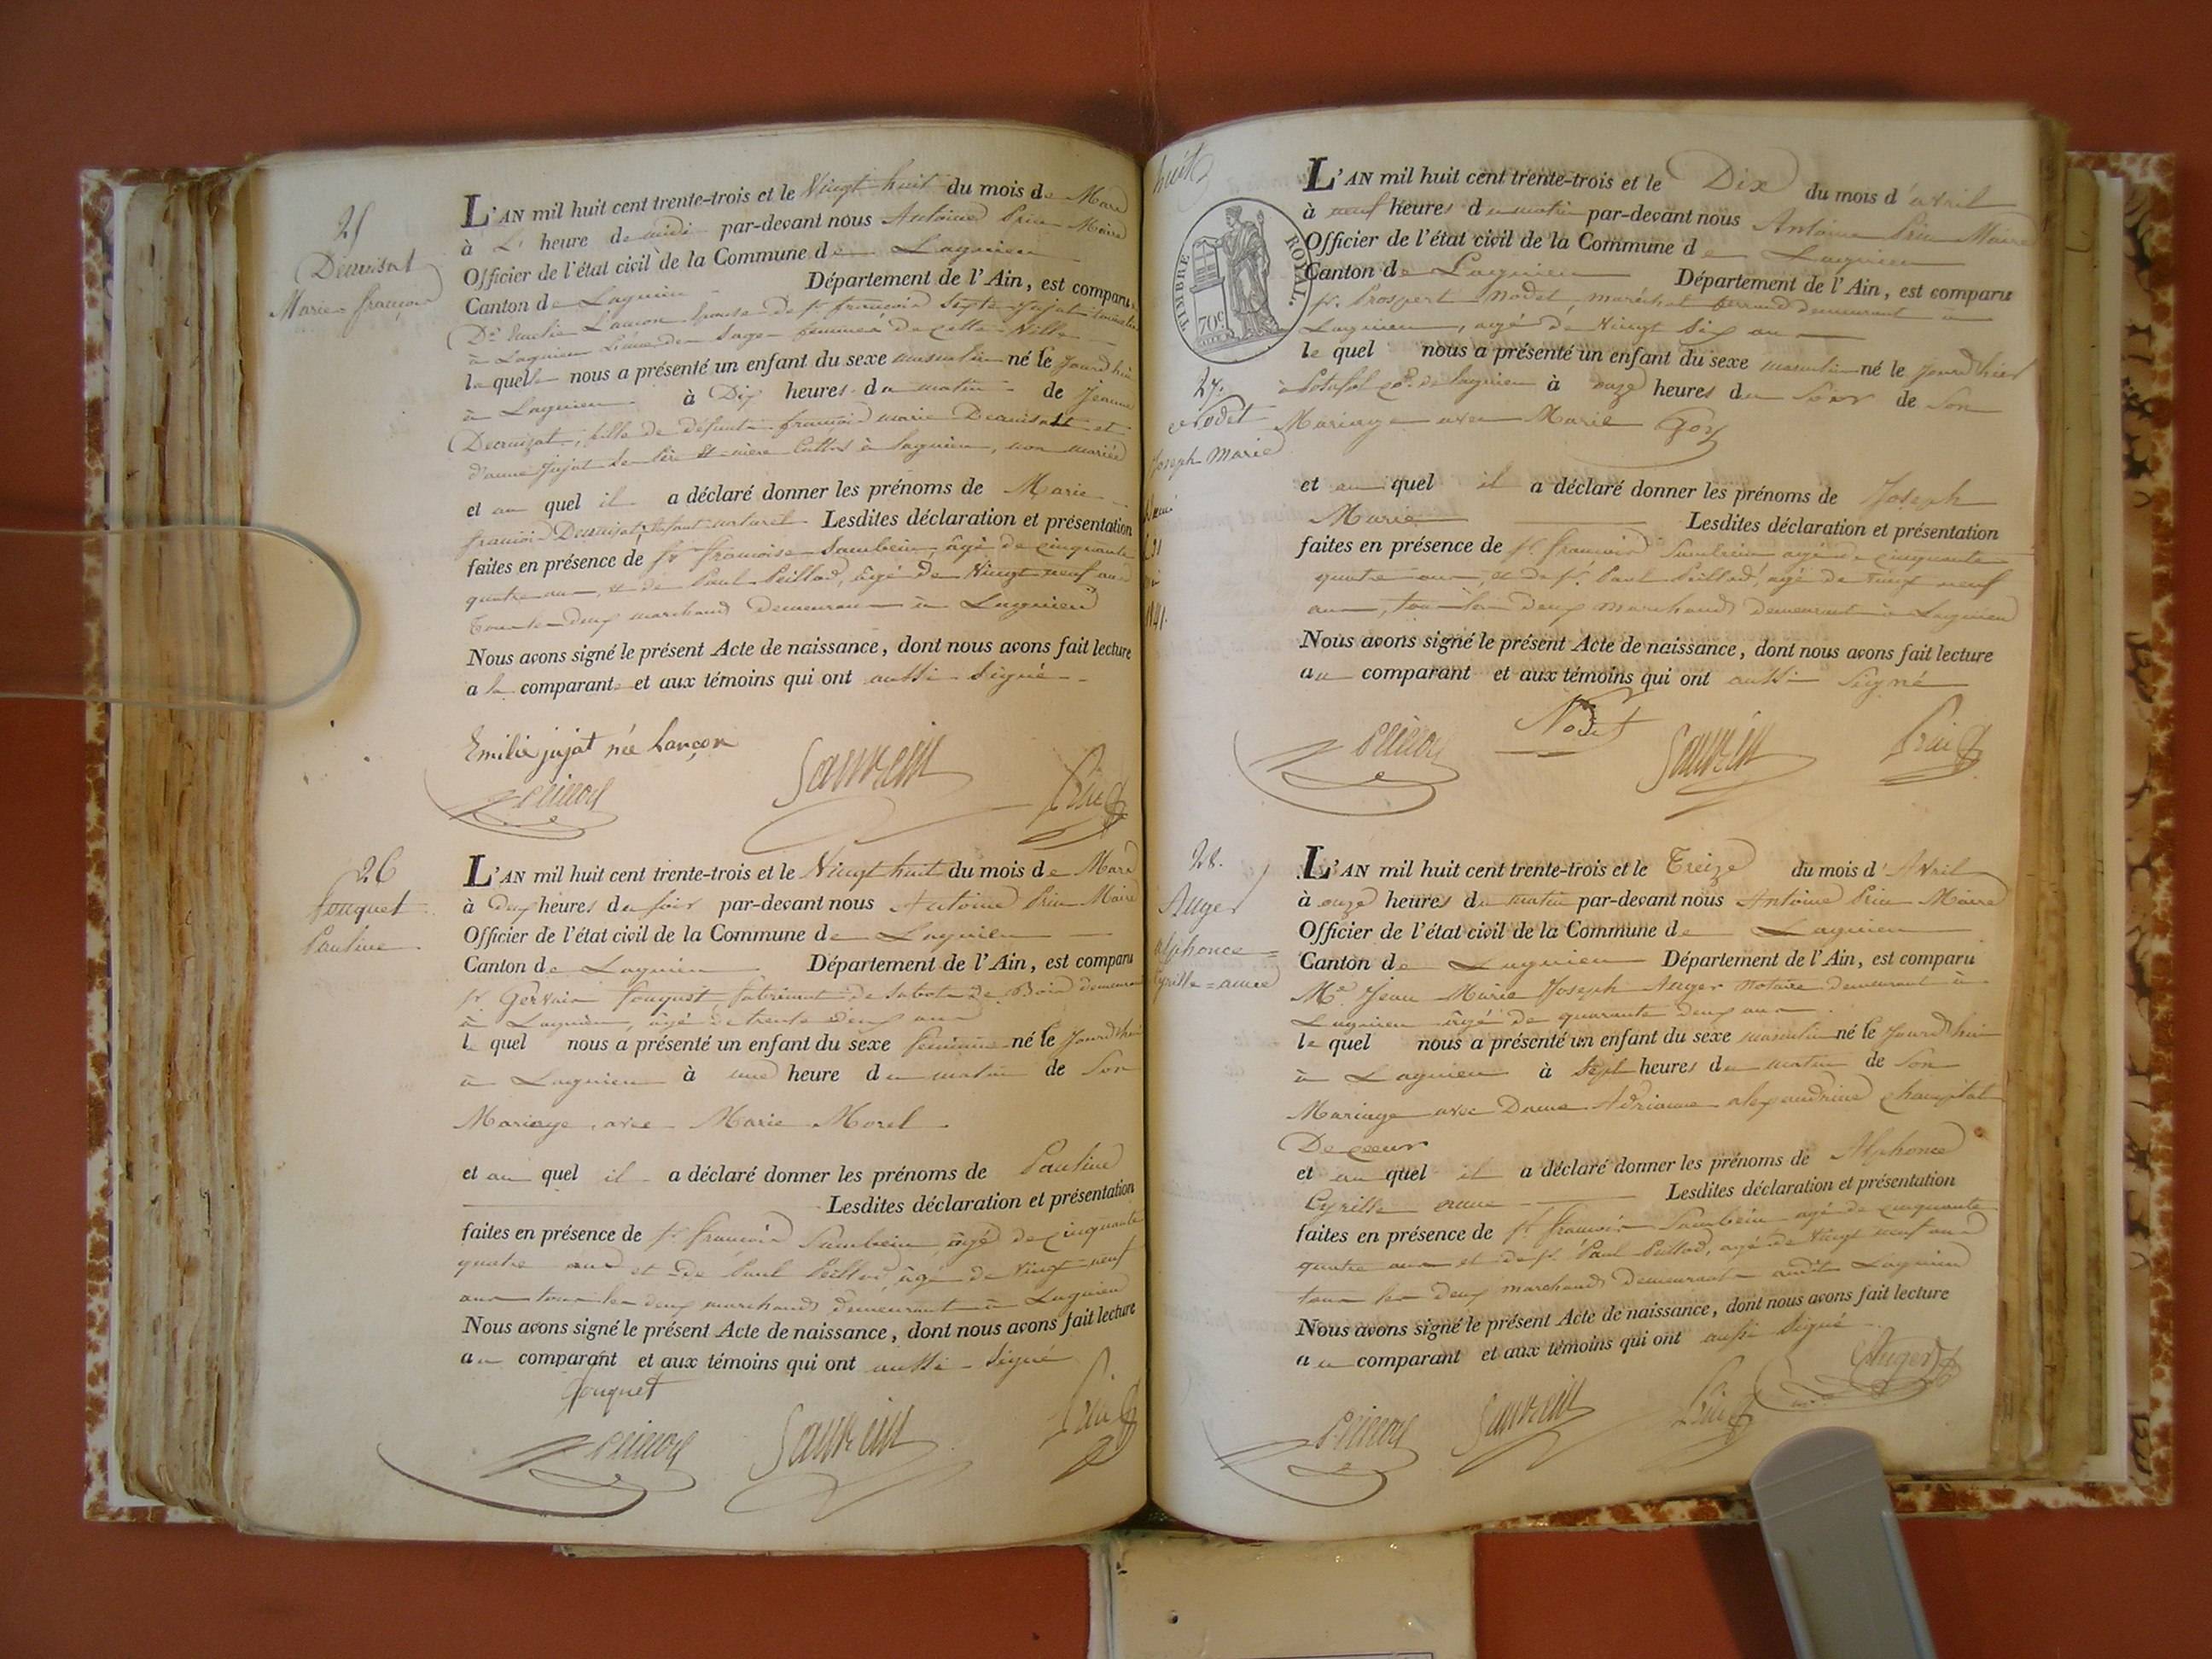 25
Marie françois
L'AN mil huit cent trente-trois et le Vingt huit du mois de Mars
à heure de midi par-devant nous Antoine Prin Maire
Officier de l'état civil de la Commune de Lagnieu
Canton de Lagnieu Département de l'Ain, est comparu
à Lagnieu sage femme de cette Ville
la quelle nous a présenté un enfant du sexe masculin né le Jourdhui
à Lagnieu à Dix heures du matin de Jeanne
fille de défunt françois marie et
non mariée
et au quel il a déclaré donner les prénoms de Marie
françois Lesdites déclaration et présentation
faites en présence de Sr françois Sauvein âgé de cinquante
quatre ans, et de Paul Peillod, âgé de Vingt neuf ans
tous les deux marchands demeurant à Lagnieu
Nous avons signé le présent Acte de naissance, dont nous avons fait lecture
a la comparante et aux témoins qui ont aussi signé
Emilie jujat née Lançon
Sauvein
26
fouquet
Pauline
L'AN mil huit cent trente-trois et le Vingt huit du mois de Mars
à deux heures du soir par-devant nous Antoine Prin Maire
Officier de l'état civil de la Commune de Lagnieu
Canton de Lagnieu Département de l'Ain, est comparu
sr Gervais fouquet fabricant de sabots de Bois demeurant
à Lagnieu, âgé de trente deux ans
le quel nous a présenté un enfant du sexe féminin né le Jourdhui
à Lagnieu à une heure du matin de Son
Mariage avec Marie Morel
et au quel il a déclaré donner les prénoms de Pauline
Lesdites déclaration et présentation
faites en présence de sr françois Sauvein âgé de cinquante
quatre ans et de Paul Peillod, âgé de Vingt neuf
ans tous les deux marchands demeurant à Lagnieu
Nous avons signé le présent Acte de naissance, dont nous avons fait lecture
au comparant et aux témoins qui ont aussi signé
fouquet
Sauvein
huit
TIMBRE ROYAL
70c
27.
Nodet
Joseph Marie
1841.
L'AN mil huit cent trente-trois et le Dix du mois d'avril
à neuf heures du matin par-devant nous Antoine Prin Maire
Officier de l'état civil de la Commune de Lagnieu
Canton de Lagnieu Département de l'Ain, est comparu
sr. Prospert Nodet, maréchal ferrand demeurant à
Lagnieu, âgé de Vingt Six ans
le quel nous a présenté un enfant du sexe masculin né le jourdhier
à de Lagnieu à onze heures du Soir de Son
Mariage avec Marie Goy
et au quel il a déclaré donner les prénoms de Joseph
Marie Lesdites déclaration et présentation
faites en présence de sr. françois Sauvein âgé de cinquante
quatre ans, et de sr. Paul Peillod, âgé de vingt neuf
ans, tous les deux marchands demeurant à Lagnieu
Nous avons signé le présent Acte de naissance, dont nous avons fait lecture
au comparant et aux témoins qui ont aussi signé
Nodet
Sauvein
28.
Auger
alphonce =
Cyrille = aimé
L'AN mil huit cent trente-trois et le Treize du mois d'Avril
à onze heures du matin par-devant nous Antoine Prin Maire
Officier de l'état civil de la Commune de Lagnieu
Canton de Lagnieu Département de l'Ain, est comparu
Me Jean Marie Joseph Auger notaire demeurant à
Lagnieu âgé de quarante deux ans
le quel nous a présenté un enfant du sexe masculin né le Jourdhui
à Lagnieu à Sept heures du matin de Son
Mariage avec Dame Adrianne alexandrine
et au quel il a déclaré donner les prénoms de Alphonce
Cyrille aimé Lesdites déclaration et présentation
faites en présence de sr françois Sauvein âgé de cinquante
quatre ans et de sr. Paul Peillod, âgé de Vingt neuf ans
tous les deux marchands demeurant audit Lagnieu
Nous avons signé le présent Acte de naissance, dont nous avons fait lecture
au comparant et aux témoins qui ont aussi signé
Auger
Sauvein